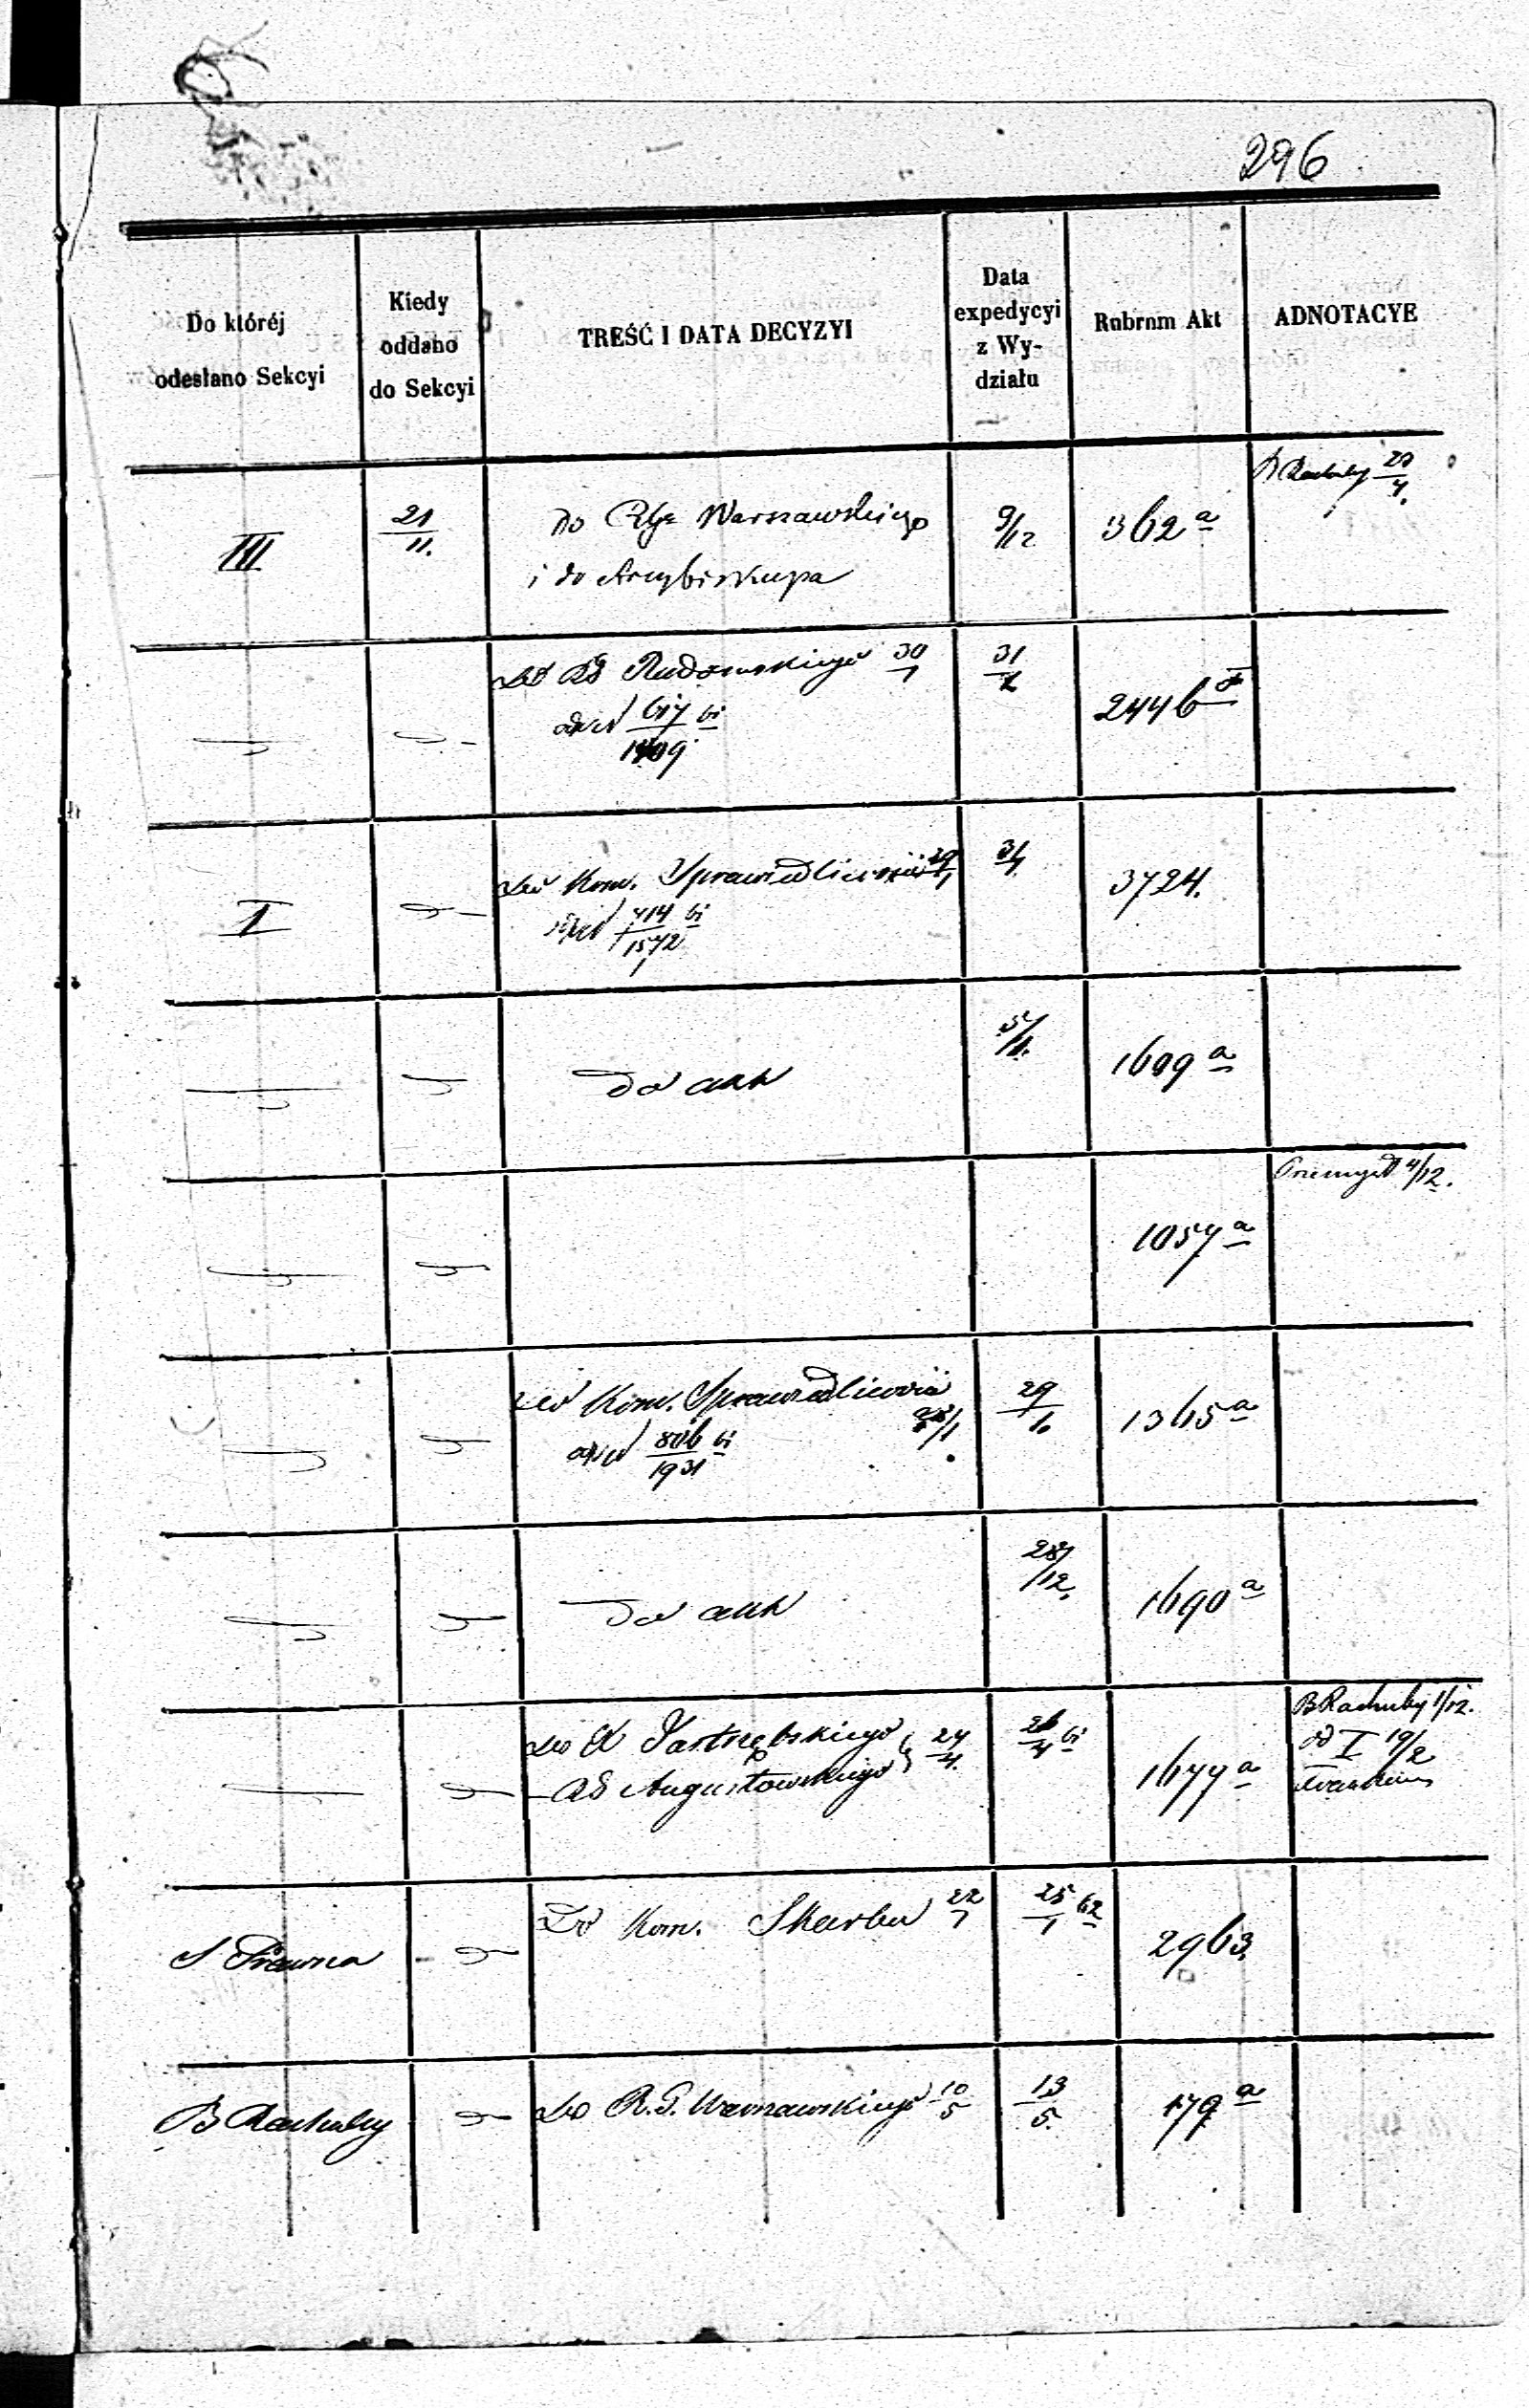 296
Do któréj
odesłano Sekcyi
Kiedy
oddano
do Sekcyi
TREŚĆ I DATA DECYZYI
Data
expedycyi
z Wy-
działu
Rubrum Akt
ADNOTACYE
III
21/11.
do Rtje Warszawskiego
i do Arcybiskupa
9/12
362 a
B Rachuby
Do RG Radomskiego 30/1
31/1
2446
I
Do Kom. Sprawiedliwości 29/1
714 bi/1572
31/1
3724.
do akt
1609 a
1057 a
Przemysł 4/12.
Do Kom. Sprawiedliwości
806 bi/1931
29/1.
1365 a
do akt
28/12.
1690 a
Do X Jastrzębskiego
RG Augustowskiego
24/4.
26/4 bi
1677 a
B Rachuby 1/12.
od I 19/2
S Prawna
Do Kom. Skarbu 22/1
25/1 62
2963.
B Rachuby
Do R. G. Warszawskiego 10/5
13/5.
179 a